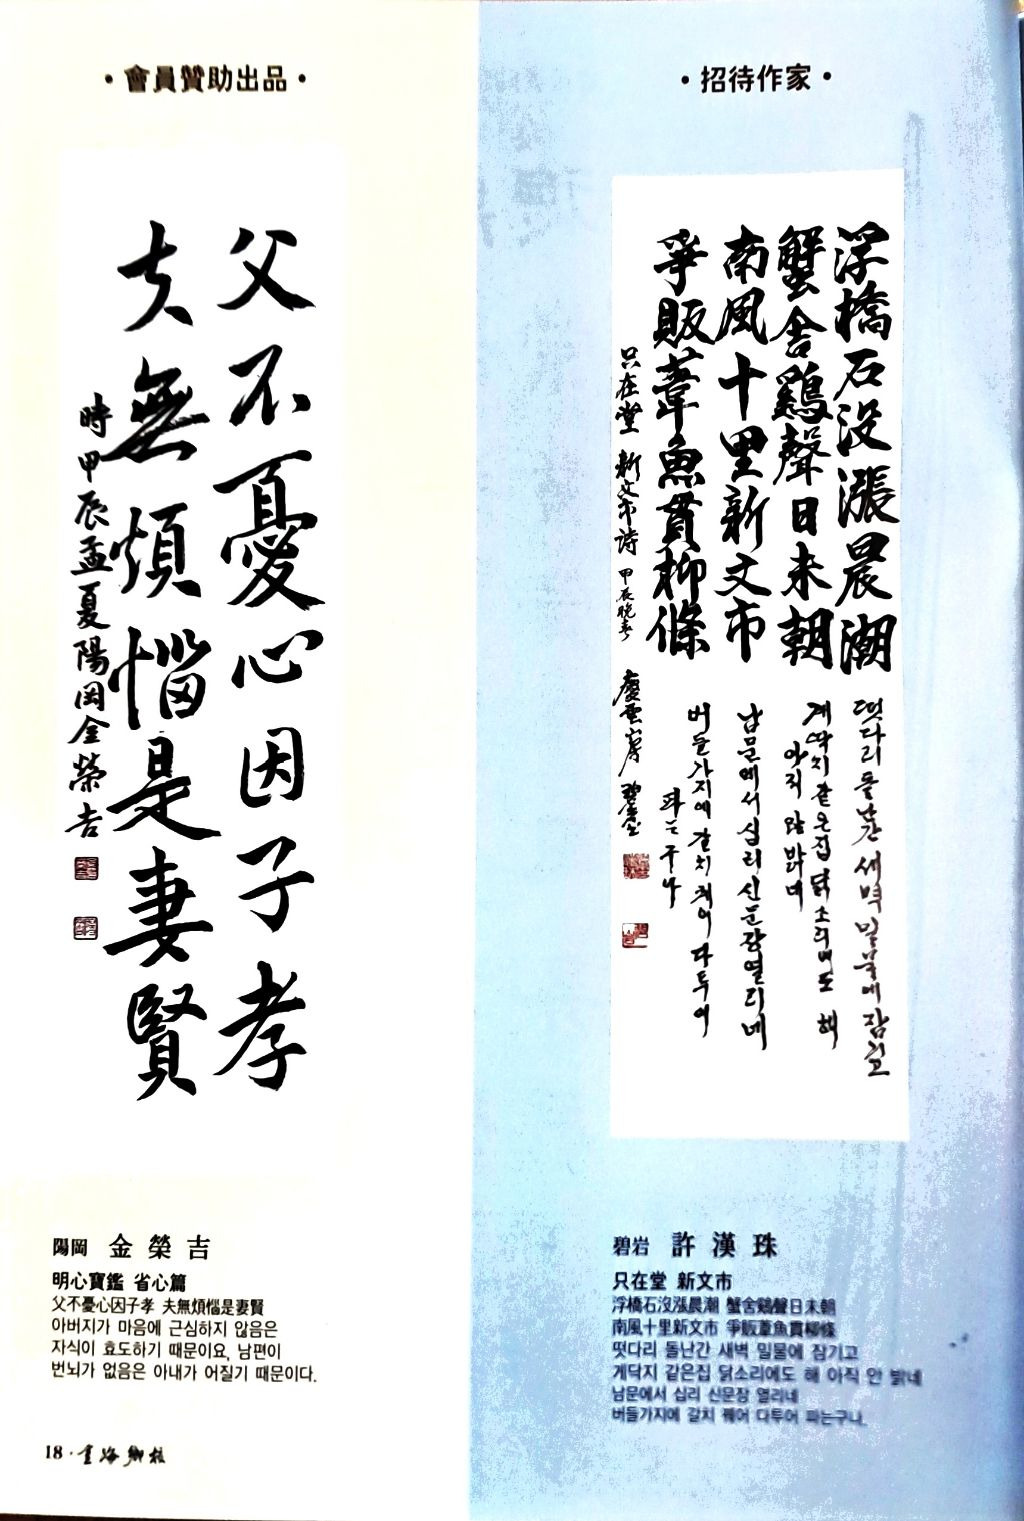 •會員贊助出品•
父不憂心因子孝
夫無煩惱是妻賢
時甲辰孟夏陽岡金榮吉
陽岡 金榮吉
明心寶鑑 省心篇
父不憂心因子孝 夫無煩惱是妻賢
아버지가 마음에 근심하지 않음은
자식이 효도하기 때문이요, 남편이
번뇌가 없음은 아내가 어질기 때문이다.
18·書海鄕校
•招待作家•
浮橋石没漲晨潮
蟹舍鷄聲日未朝
南風十里新文市
爭販葦魚貫柳條
떳다리 돌난간 새벽 밀물에 잠기고
게딱지 같은집 닭소리에도 해
아직 안 밝네
남문에서 십리 신문장 열리네
버들가지에 갈치 꿰어 다투어
파는구나
只在堂 新文市詩 甲辰晩春
碧岩 許漢珠
只在堂 新文市
浮橋石沒漲晨潮 蟹舍鷄聲日未朝
南風十里新文市 爭販葦魚貫柳條
떳다리 돌난간 새벽 밀물에 잠기고
게닥지 같은집 닭소리에도 해 아직 안 밝네
남문에서 십리 신문장 열리네
버들가지에 갈치 꿰어 다투어 파는구나.